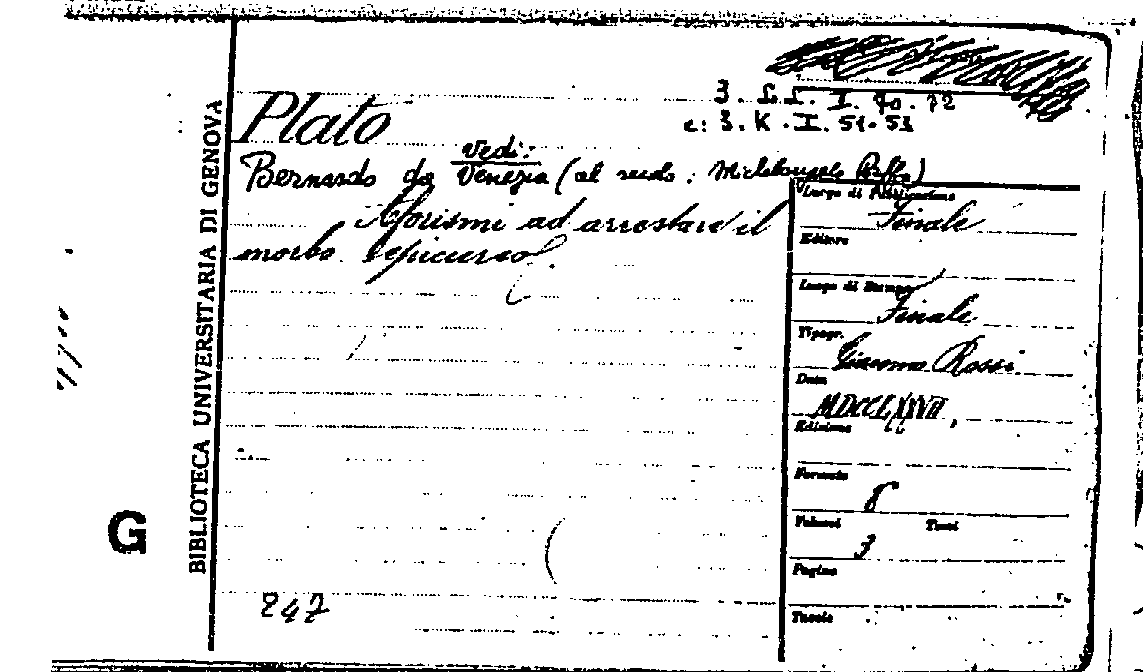 3. L.L. I. 70. 72
e: 3. K. I. 51-53
Plato
Vedi:
Bernardo da Venezia (al secolo: Michelangelo
Aforismi ad arrestare il
morbo epicureo.
Luogo di Pubblicazione
Finale
Editore
Luogo di Stampa
Finale
Tipogr.
Giacomo Rossi
Data
MDCCLXXVII
Edizione
Formato
8
Volumi Tomi
3
Pagine
Tavole
247
BIBLIOTECA UNIVERSITARIA DI GENOVA
G